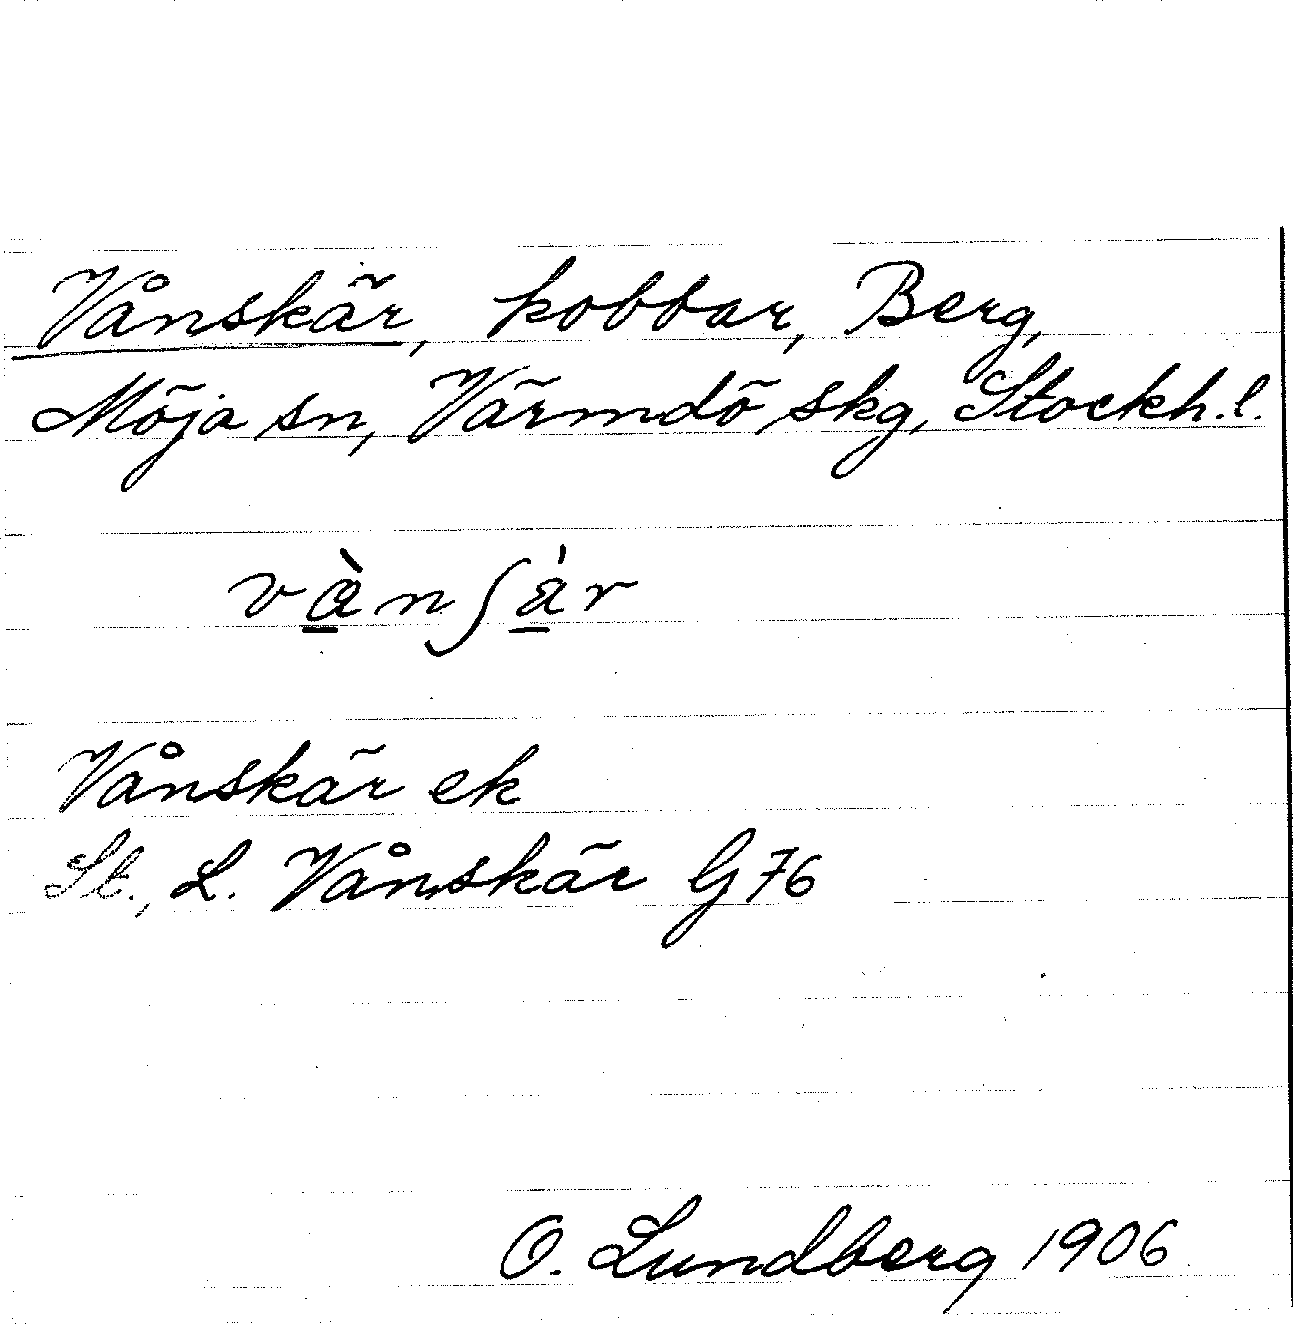 Vånskär, kobbar, Berg,
Möja sn, Värmdö skg, Stockh.l.
vànʃár
Vånskär ek
St., L. Vånskär G 76
O. Lundberg 1906